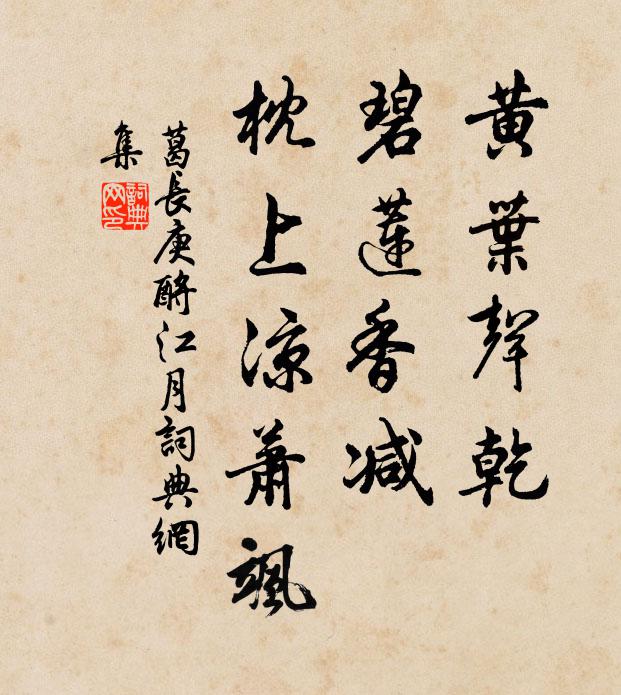 黃葉聲乾
碧蓮香减
枕上涼蕭颯
葛長庚酹江月詞典網
集
詞典
网印